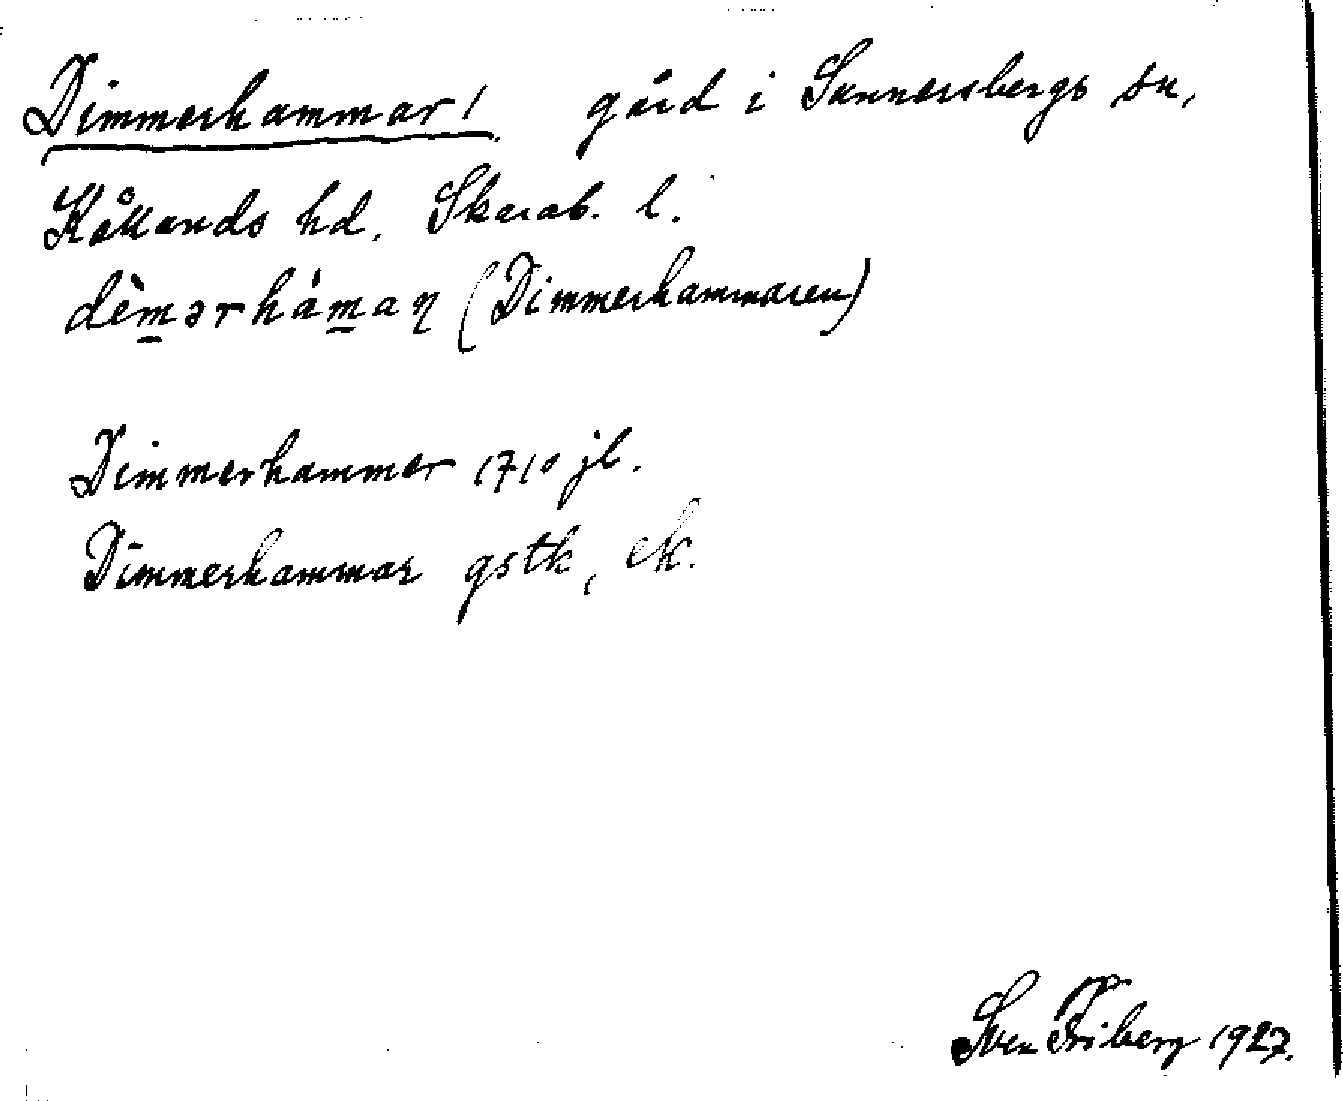 Dimmerhammar! gård i Sunnersbergs sn,
Kållands hd. Skarab. l.
dèmərháman (Dimmerhammaren)
Dimmerhammer 1710 jb.
Dimmerhammar gstk, ek.
Sven Friberg 1927.